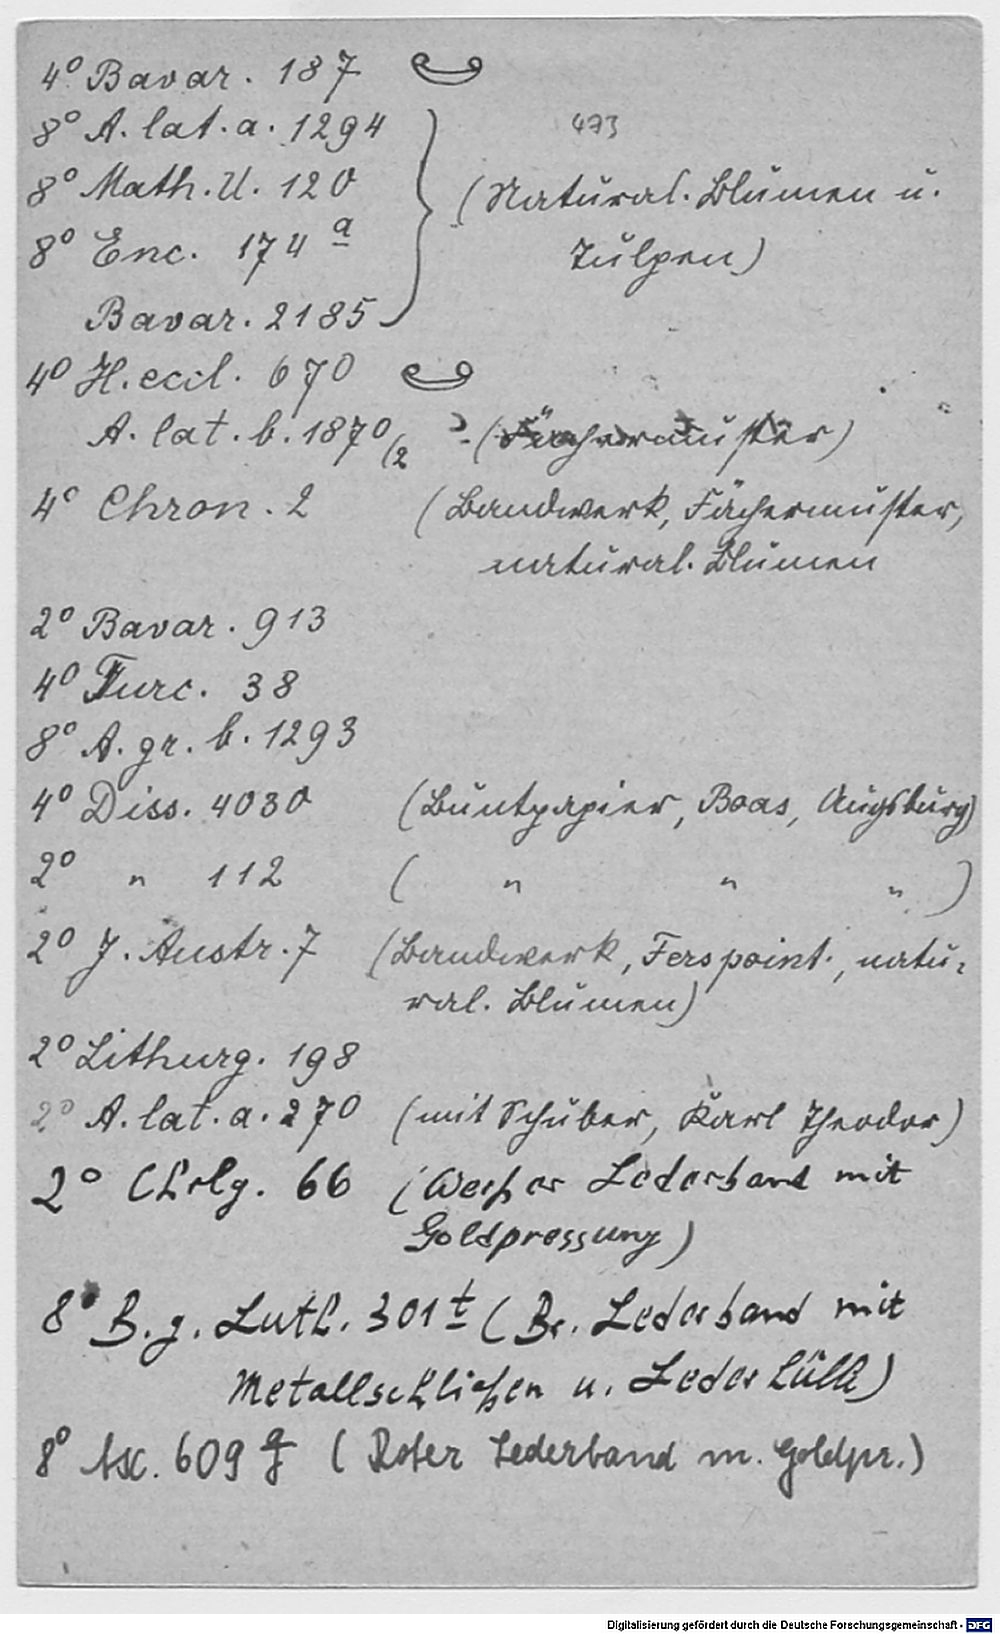 4° Bavar. 187
8° A. lat. a. 1294
473
8° Math. U. 120 (Natural. Blumen u.
8° Enc. 174 a Tulpen)
Bavar. 2185
4° H. eccl. 670
A. lat. b. 1870/2 (Fächermuster)
4° Chron. 2 (Bandwerk, Fächermuster,
natural. Blumen
2° Bavar. 913
4° Turc. 38
8° A. gr. b. 1293
4° Diss. 4030 (Buntpapier, Boas, Augsburg)
2° " 112 ( " " " )
2° J. Austr. 7 (Bandwerk, Ferspoint., natu-
ral. Blumen)
2° Lithurg. 198
2° A. lat. a. 270 (mit Schuber, Karl Theodor)
2° Chrlg. 66 (Weißer Lederband mit
Goldpressung)
8° B. g. Luth. 301 t (Br. Lederband mit
Metallschließen u. Lederhülle)
8° Asc. 609 g (Roter Lederband m. Goldpr.)
Digitalisierung gefördert durch die Deutsche Forschungsgemeinschaft - DFG